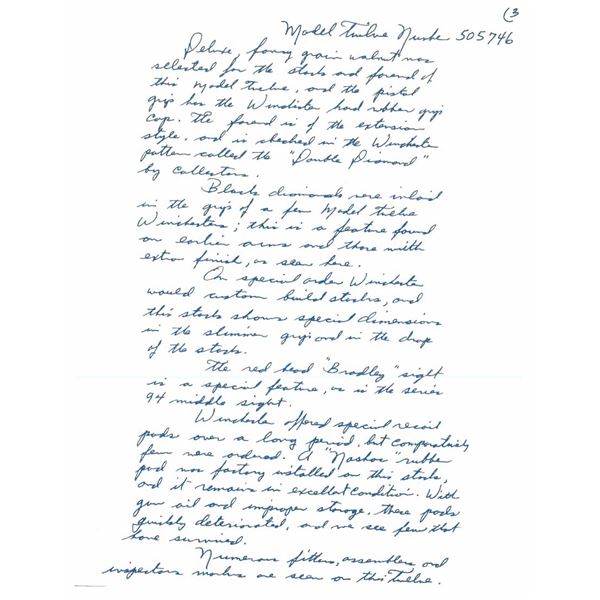 (3
Model Twelve Number 505746
Deluxe, fancy grain walnut was
selected for the stock and forend of
this Model Twelve, and the pistol
grip has the Winchester hard rubber grip
cap. The forend is of the extension
style, and is checked in the Winchester
pattern called the "Double Diamond"
by collectors.
Black diamonds were inlaid
in the grip of a few Model Twelve
Winchesters; this is a feature found
on earlier arms and those with
extra finish, as seen here.
On special order Winchester
would custom build stocks, and
this stock shows special dimensions
in the slimmer grip and in the drop
of the stock.
The red bead "Bradley" sight
is a special feature, as is the series
94 middle sight.
Winchester offered special recoil
pads over a long period, but comparatively
few were ordered. A rubber
pad was factory installed on this stock,
and it remains in excellent condition. With
gun oil and improper storage, these pads
quickly deteriorated, and we see few that
have survived.
Numerous fitters, assemblers and
inspectors marks are seen on this Twelve.